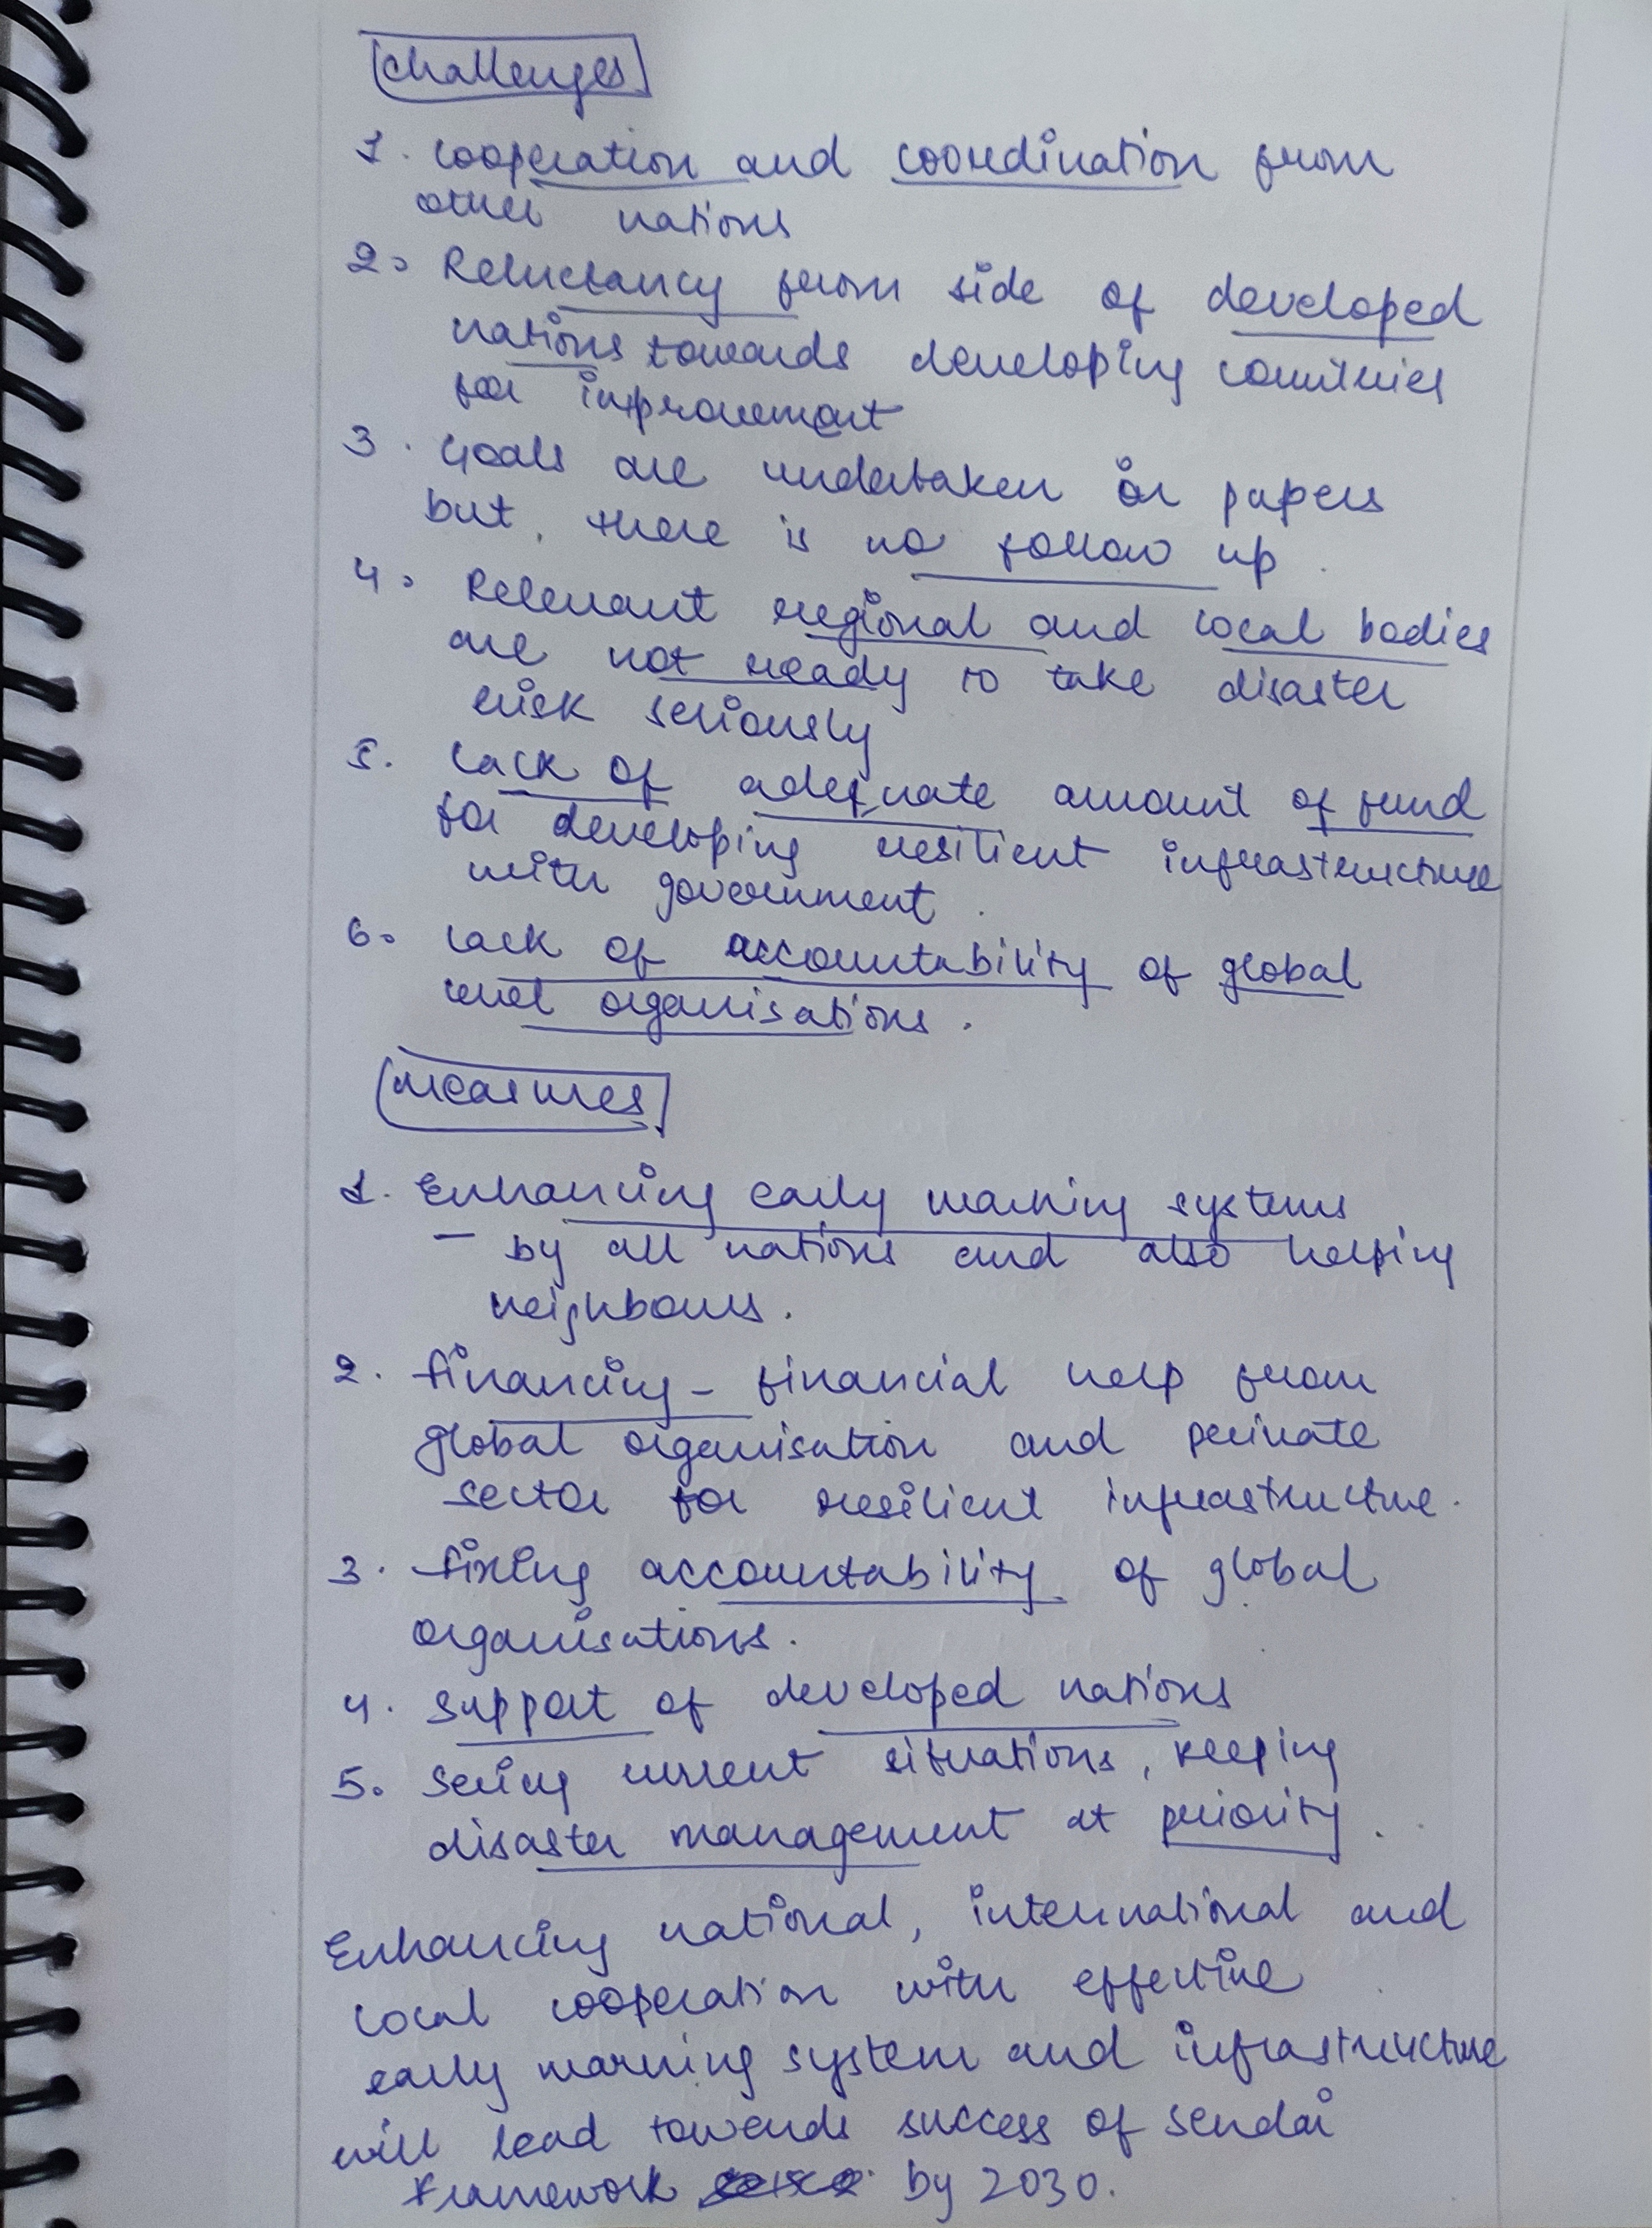 Challenges
1. Cooperation and coordination from
other nations
2. Reluctancy from side of developed
nations towards developing countries
for improvement
3. Goals are undertaken on papers
but, there is no follow up.
4. Relevant regional and local bodies
are not ready to take disaster
risk seriously
5. Lack of adequate amount of fund
for developing resilient infrastructure
with government.
6. Lack of accountability of global
level organisations.
Measures
1. Enhancing early warning systems
– by all nations and also helping
neighbours.
2. Financing – financial help from
global organisation and private
sector for resilient infrastructure.
3. Fixing accountability of global
organisations.
4. Support of developed nations
5. Seeing current situations, keeping
disaster management at priority.
Enhancing national, international and
local cooperation with effective
early warning system and infrastructure
will lead towards success of Sendai
Framework by 2030.